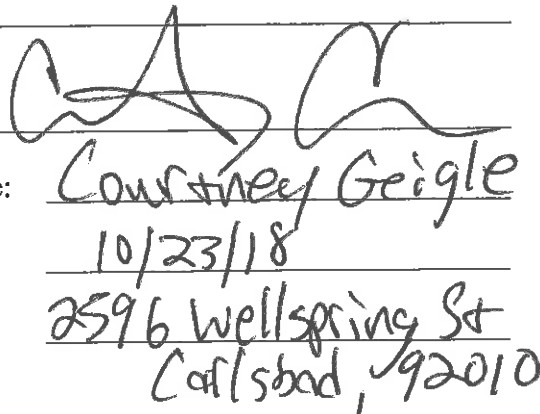 e:
Courtney Geigle
10/23/18
2596 Wellspring St
Carlsbad, 92010